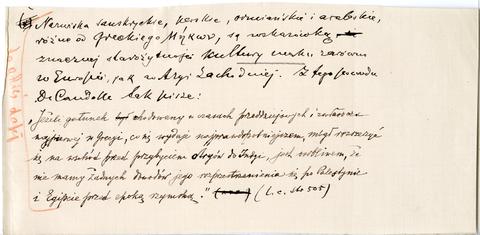 Nazwiska sanskryckie, perskie, ormiańskie i arabskie,
różne od greckiego Μήκων, są wskazówką
znacznej starożytności kultury maku zarówno
w Europie, jak w Azyi Zachodniej. Z tego powodu
De Candolle tak pisze:
„Jeżeli gatunek był hodowany w czasach przeddziejowych i zwłaszcza
najpierwej w Grecyi, co się wydaje najprawdopodobniejszem, mógł rozszerzyć
się na wschód przed przybyciem Aryów do Indyj, jest możliwem, że
nie mamy żadnych dowodów jego rozprzestrzenienia się po Palestynie
i Egipcie przed epoką rzymską." (l. c. str. 505)